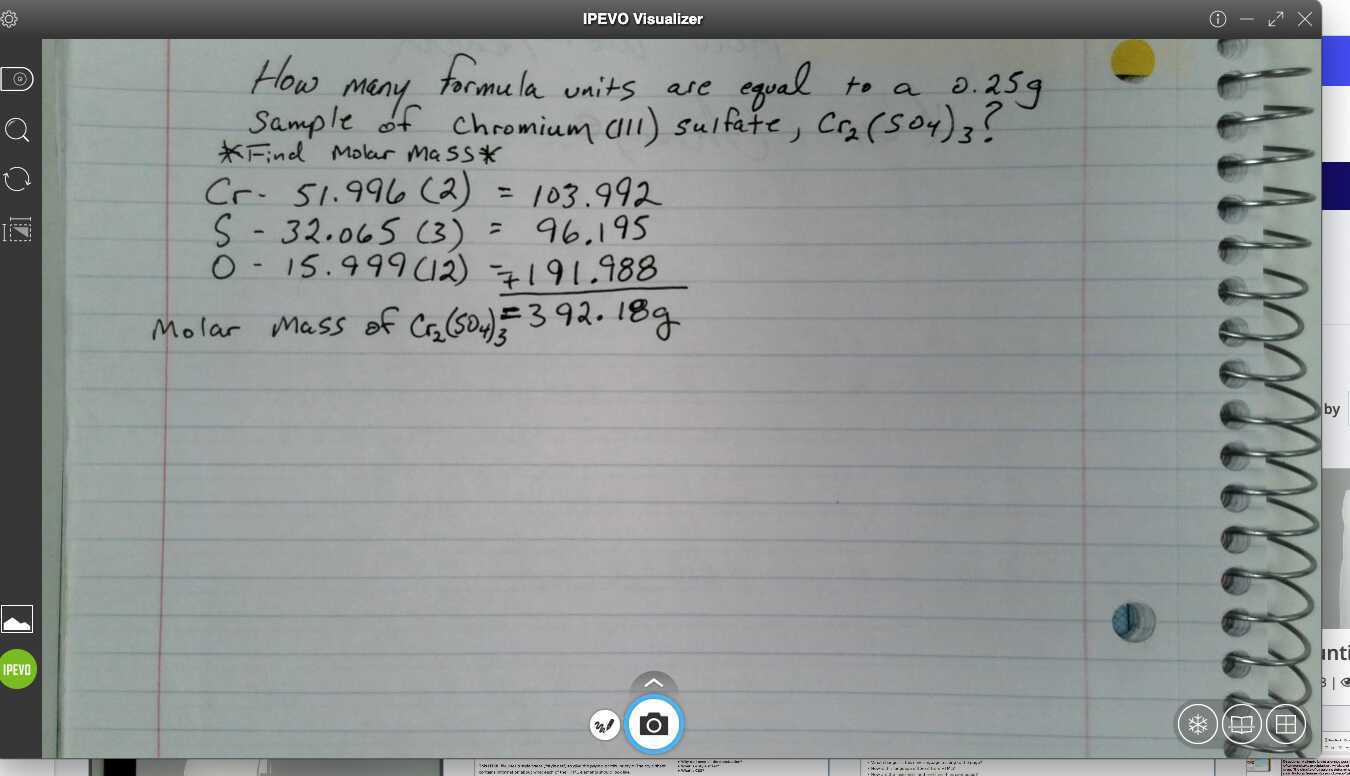 IPEVO Visualizer
How many formula units are equal to a 0.25g
Sample of Chromium (III) sulfate, Cr₂(SO₄)₃?
*Find Molar Mass*
Cr - 51.996 (2) = 103.992
S - 32.065 (3) = 96.195
O - 15.999 (12) = +191.988
Molar Mass of Cr₂(SO₄)₃ = 392.18g
by
unti
3 |
IPEVO